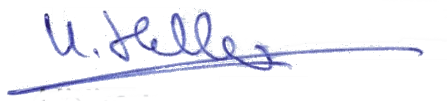 U. Heller